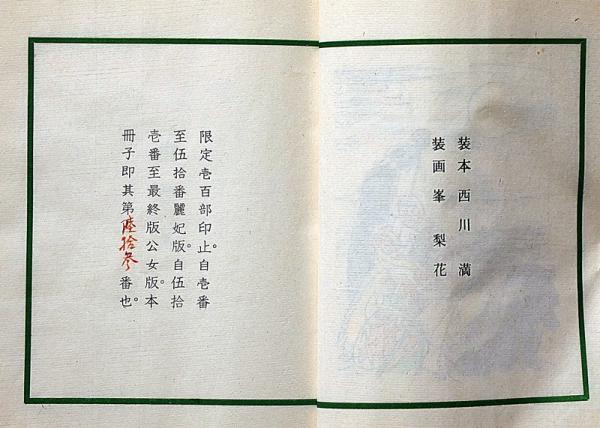 装本 西川 満
装画 峯 梨花
限定壱百部印止。自壱番
至伍拾番麗妃版。自伍拾
壱番至最終版公女版。本
冊子即其第陸拾参番也。